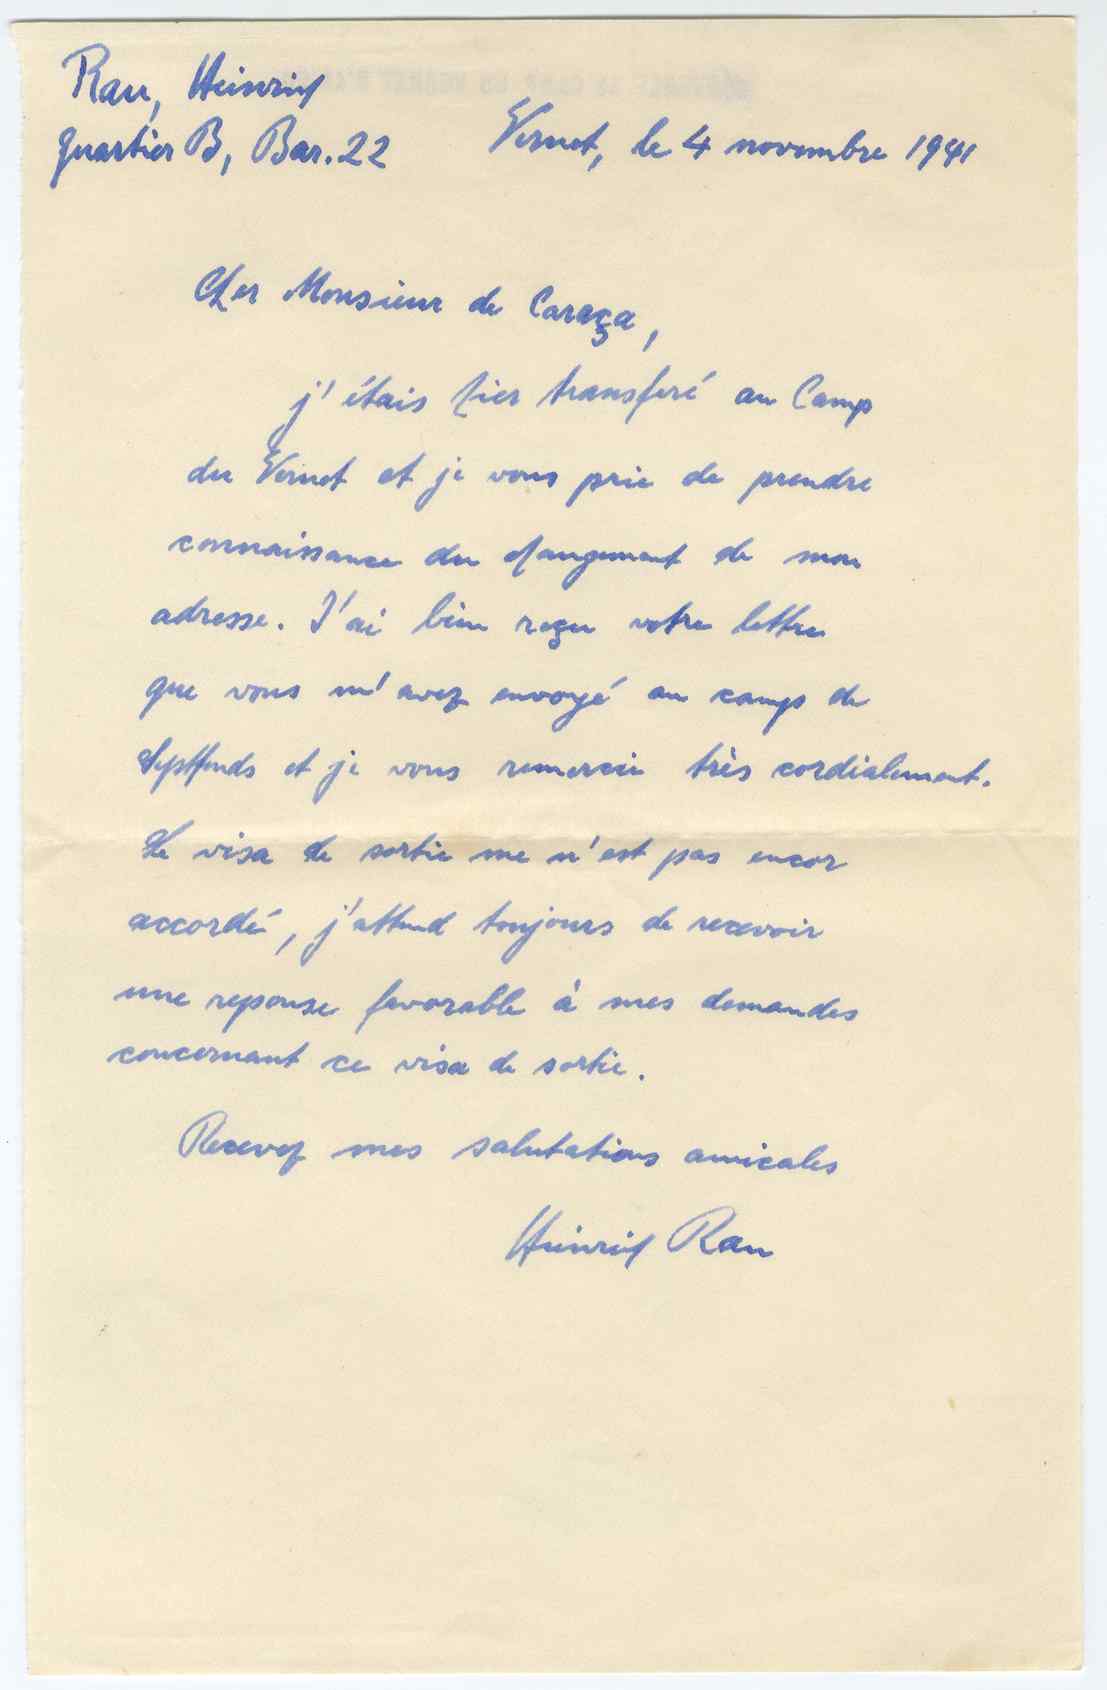 Rau, Heinrich
Quartier B, Bar. 22
Vernet, le 4 novembre 1941
Cher Monsieur de Caraça,
j'étais hier transferé au Camp
du Vernet et je vous prie de prendre
connaissance du changement de mon
adresse. J'ai bien reçu votre lettre
que vous m'avez envoyé au camps de
Septfonds et je vous remercie très cordialement.
Le visa de sortie me n'est pas encor
accordé, j'attend toujours de recevoir
une reponse favorable à mes demandes
concernant ce visa de sortie.
Recevez mes salutations amicales
Heinrich Rau